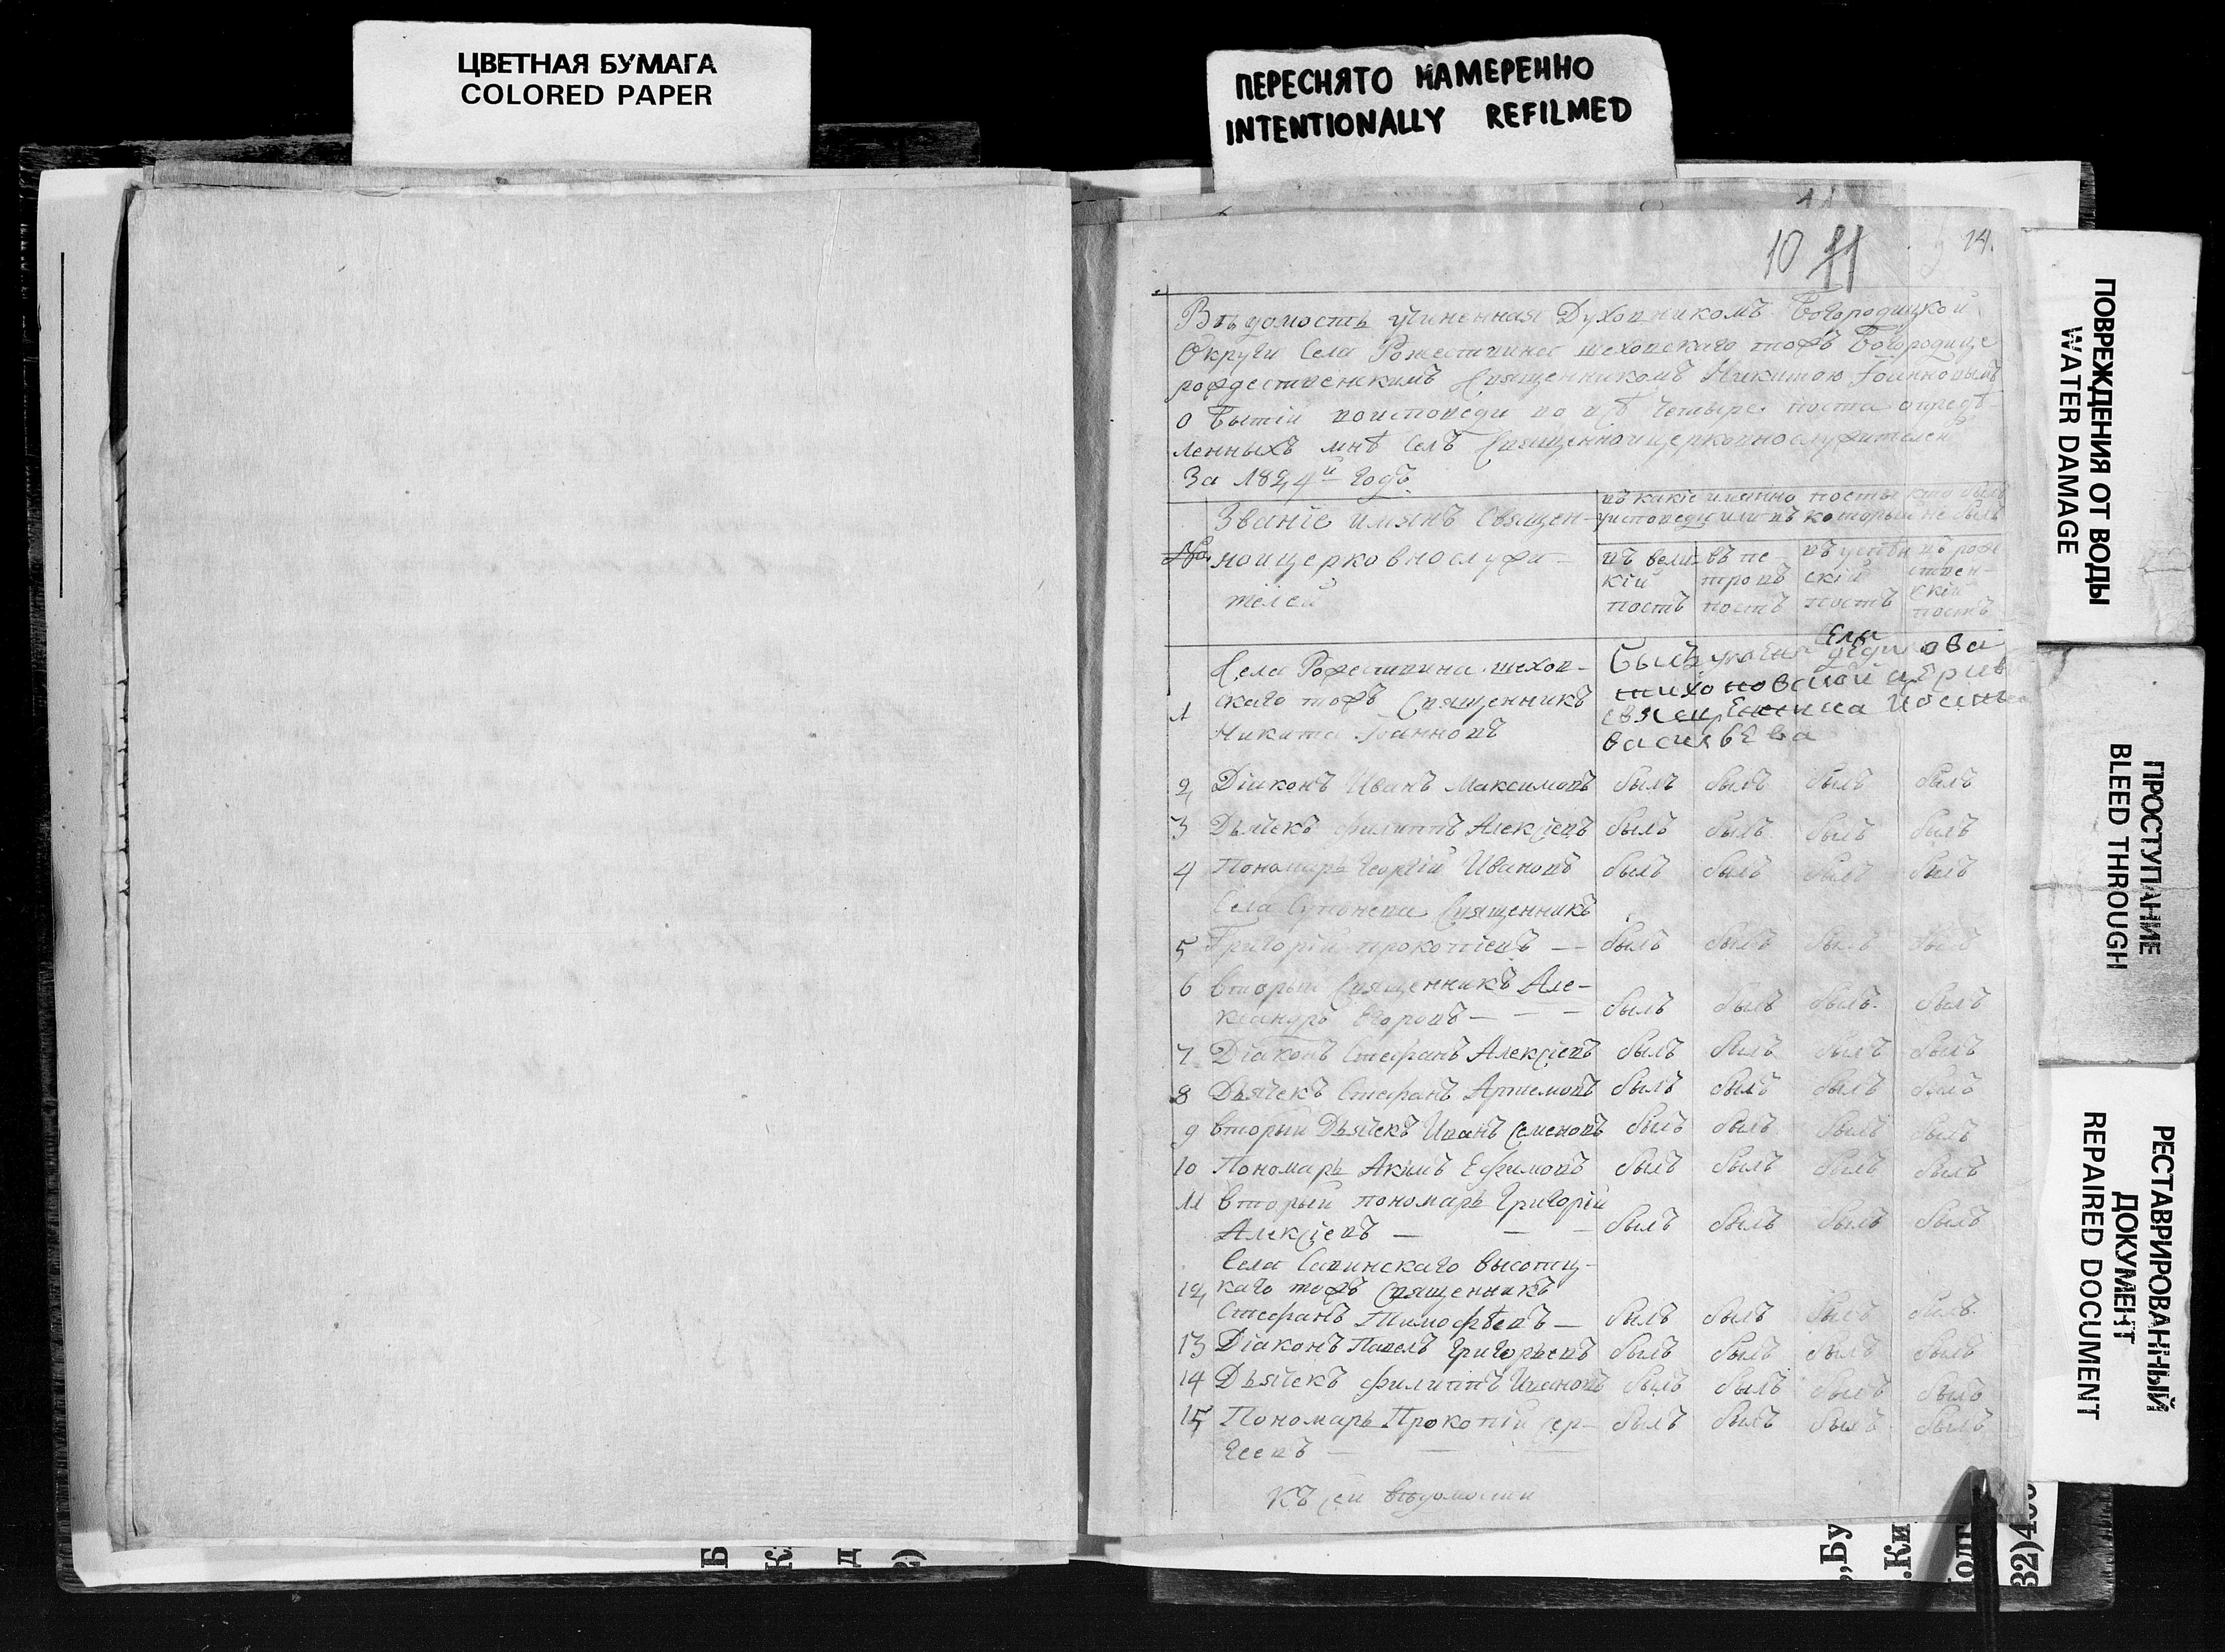 ЦВЕТНАЯ БУМАГА
COLORED PAPER
ПЕРЕСНЯТО НАМЕРЕННО
INTENTIONALLY REFILMED
ПОВРЕЖДЕНИЯ ОТ ВОДЫ
WATER DAMAGE
ПРОСТУПАНИЕ
BLEED THROUGH
РЕСТАВРИРОВАННЫЙ
ДОКУМЕНТ
REPAIRED DOCUMENT
10 11 14.
Вѣдомость учиненная Духовникомъ Богородицкой
Округи Села Рожествина шеховскаго тожъ Богородице
рождественскимъ Священникомъ Никитою Іоанновымъ
о бытіи воисповеди во всѣ четыре поста опредѣ
ленныхъ мнѣ селъ Священноицерковнослужителей
За 1824й годъ
№ Званіе имянъ Священ-
ноицерковнослужи-
телей
въ какіе имянно посты кто былъ
уисповеди или въ которыи не былъ
въ вели-
кій
постъ
въ пе-
тровъ
постъ
въ успѣн
скій
постъ
въ рож
ствен-
скій
постъ
Села Рожествина шехов-
1 скаго тожъ Священникъ
Никита Іоанновъ
былъ Села дедилова
священника
васильева
2 Діаконъ Иванъ Максимовъ былъ былъ былъ былъ
3 Дьячекъ Филиппъ Алексіевъ былъ былъ былъ былъ
4 Пономарь Георгій Ивановъ былъ былъ былъ былъ
Села Супонева Священникъ
5 Григорій прокопіевъ — былъ былъ былъ былъ
6 вторыи Священникъ Але-
ксандръ Егоровъ — — — былъ былъ былъ былъ
7 Діаконъ Стефанъ Алексіевъ былъ былъ былъ былъ
8 Дьячекъ Стефанъ Артемовъ былъ былъ былъ былъ
9 вторыи Дьячекъ Иванъ Семеновъ былъ былъ былъ былъ
10 Пономарь Акимъ Ефимовъ былъ былъ былъ былъ
11 вторыи пономарь Григорій
Алексіевъ — — — былъ былъ былъ былъ
Села Савинскаго высоц-
12 каго тожъ Священникъ
Стефанъ Тимофѣевъ — былъ былъ былъ былъ
13 Діаконъ Павелъ Григорьевъ былъ былъ былъ былъ
14 Дьячекъ Филиппъ Ивановъ былъ былъ былъ былъ
15 Пономарь Прокопій Сер- былъ былъ былъ былъ
геевъ — — —
Къ сей вѣдомости